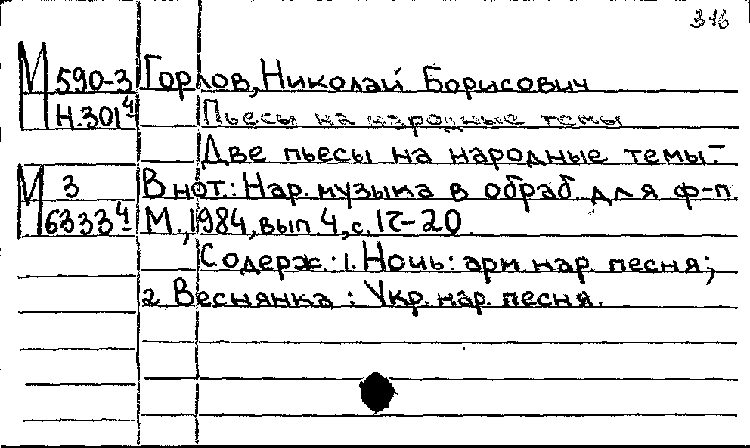 316
М 590-3 Горлов, Николай Борисович
Н.301⁴ Пьесы на народные темы
Две пьесы на народные темы.-
М 3 В нот.: Нар. музыка в обраб. для ф-п.
63334 М., 1984, вып 4, с. 17-20.
Содерж.: 1. Ночь: арм. нар. песня;
2. Веснянка: Укр. нар. песня.